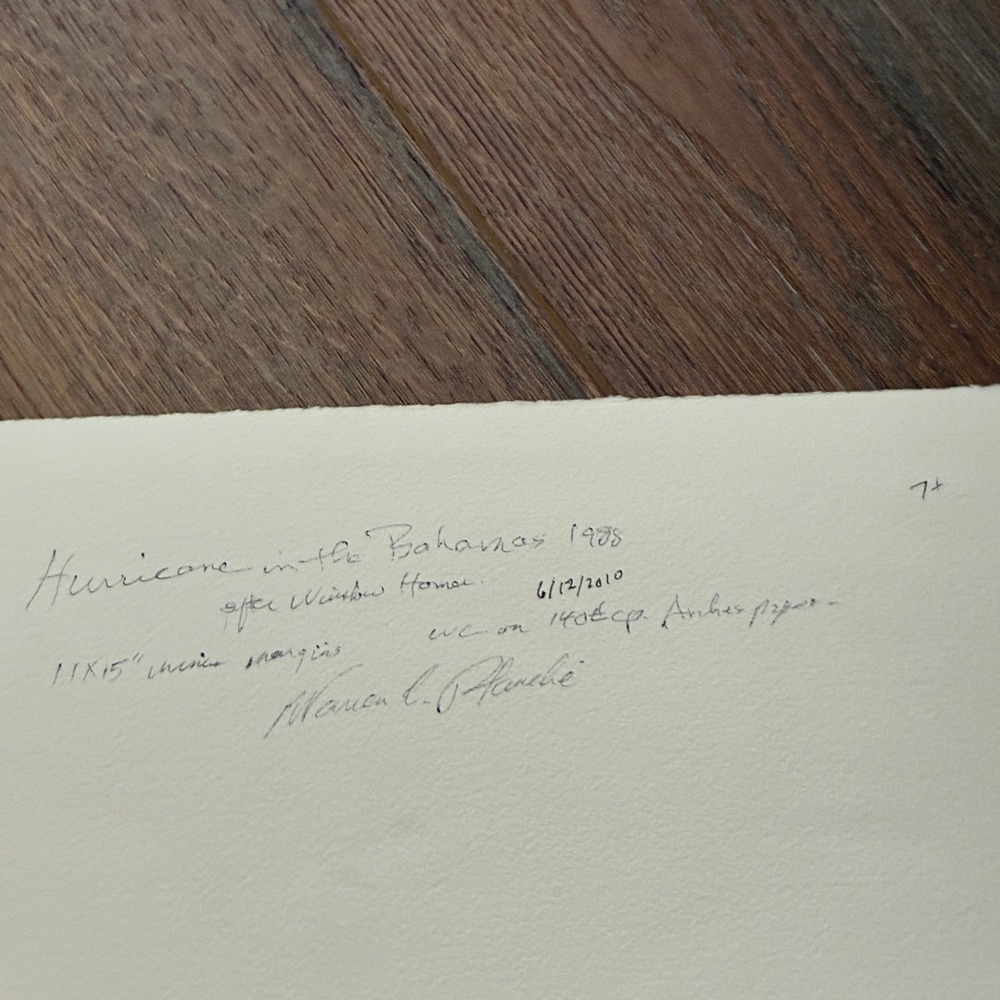 7+
Hurricane in the Bahamas 1988
after Winslow Homer
6/12/2010
11X15" minus margins
wc on 140# cp. Arches paper-
Warren C. Planche